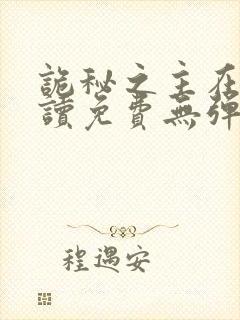 詭秘之主在
讀免費無彈
程遇安